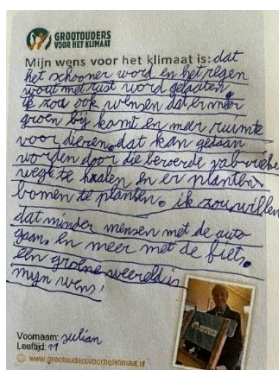 GROOTOUDERS
VOOR HET KLIMAAT
Mijn wens voor het klimaat is: dat
het schooner word en het regen
wout met rust word gelaten.
ik zou ook wensen dat er meer
groen bij komt en meer ruimte
voor dieren. dat kan gedaan
worden door die beroerde fabrieken
weg te haalen en er planten
bomen te planten. ik zou willen
dat minder mensen met de auto
gaan, en meer met de fiets.
een groene weereld is
mijn wens!
Voornaam: Julian
Leeftijd: 11
www.grootoudersvoorhetklimaat.nl